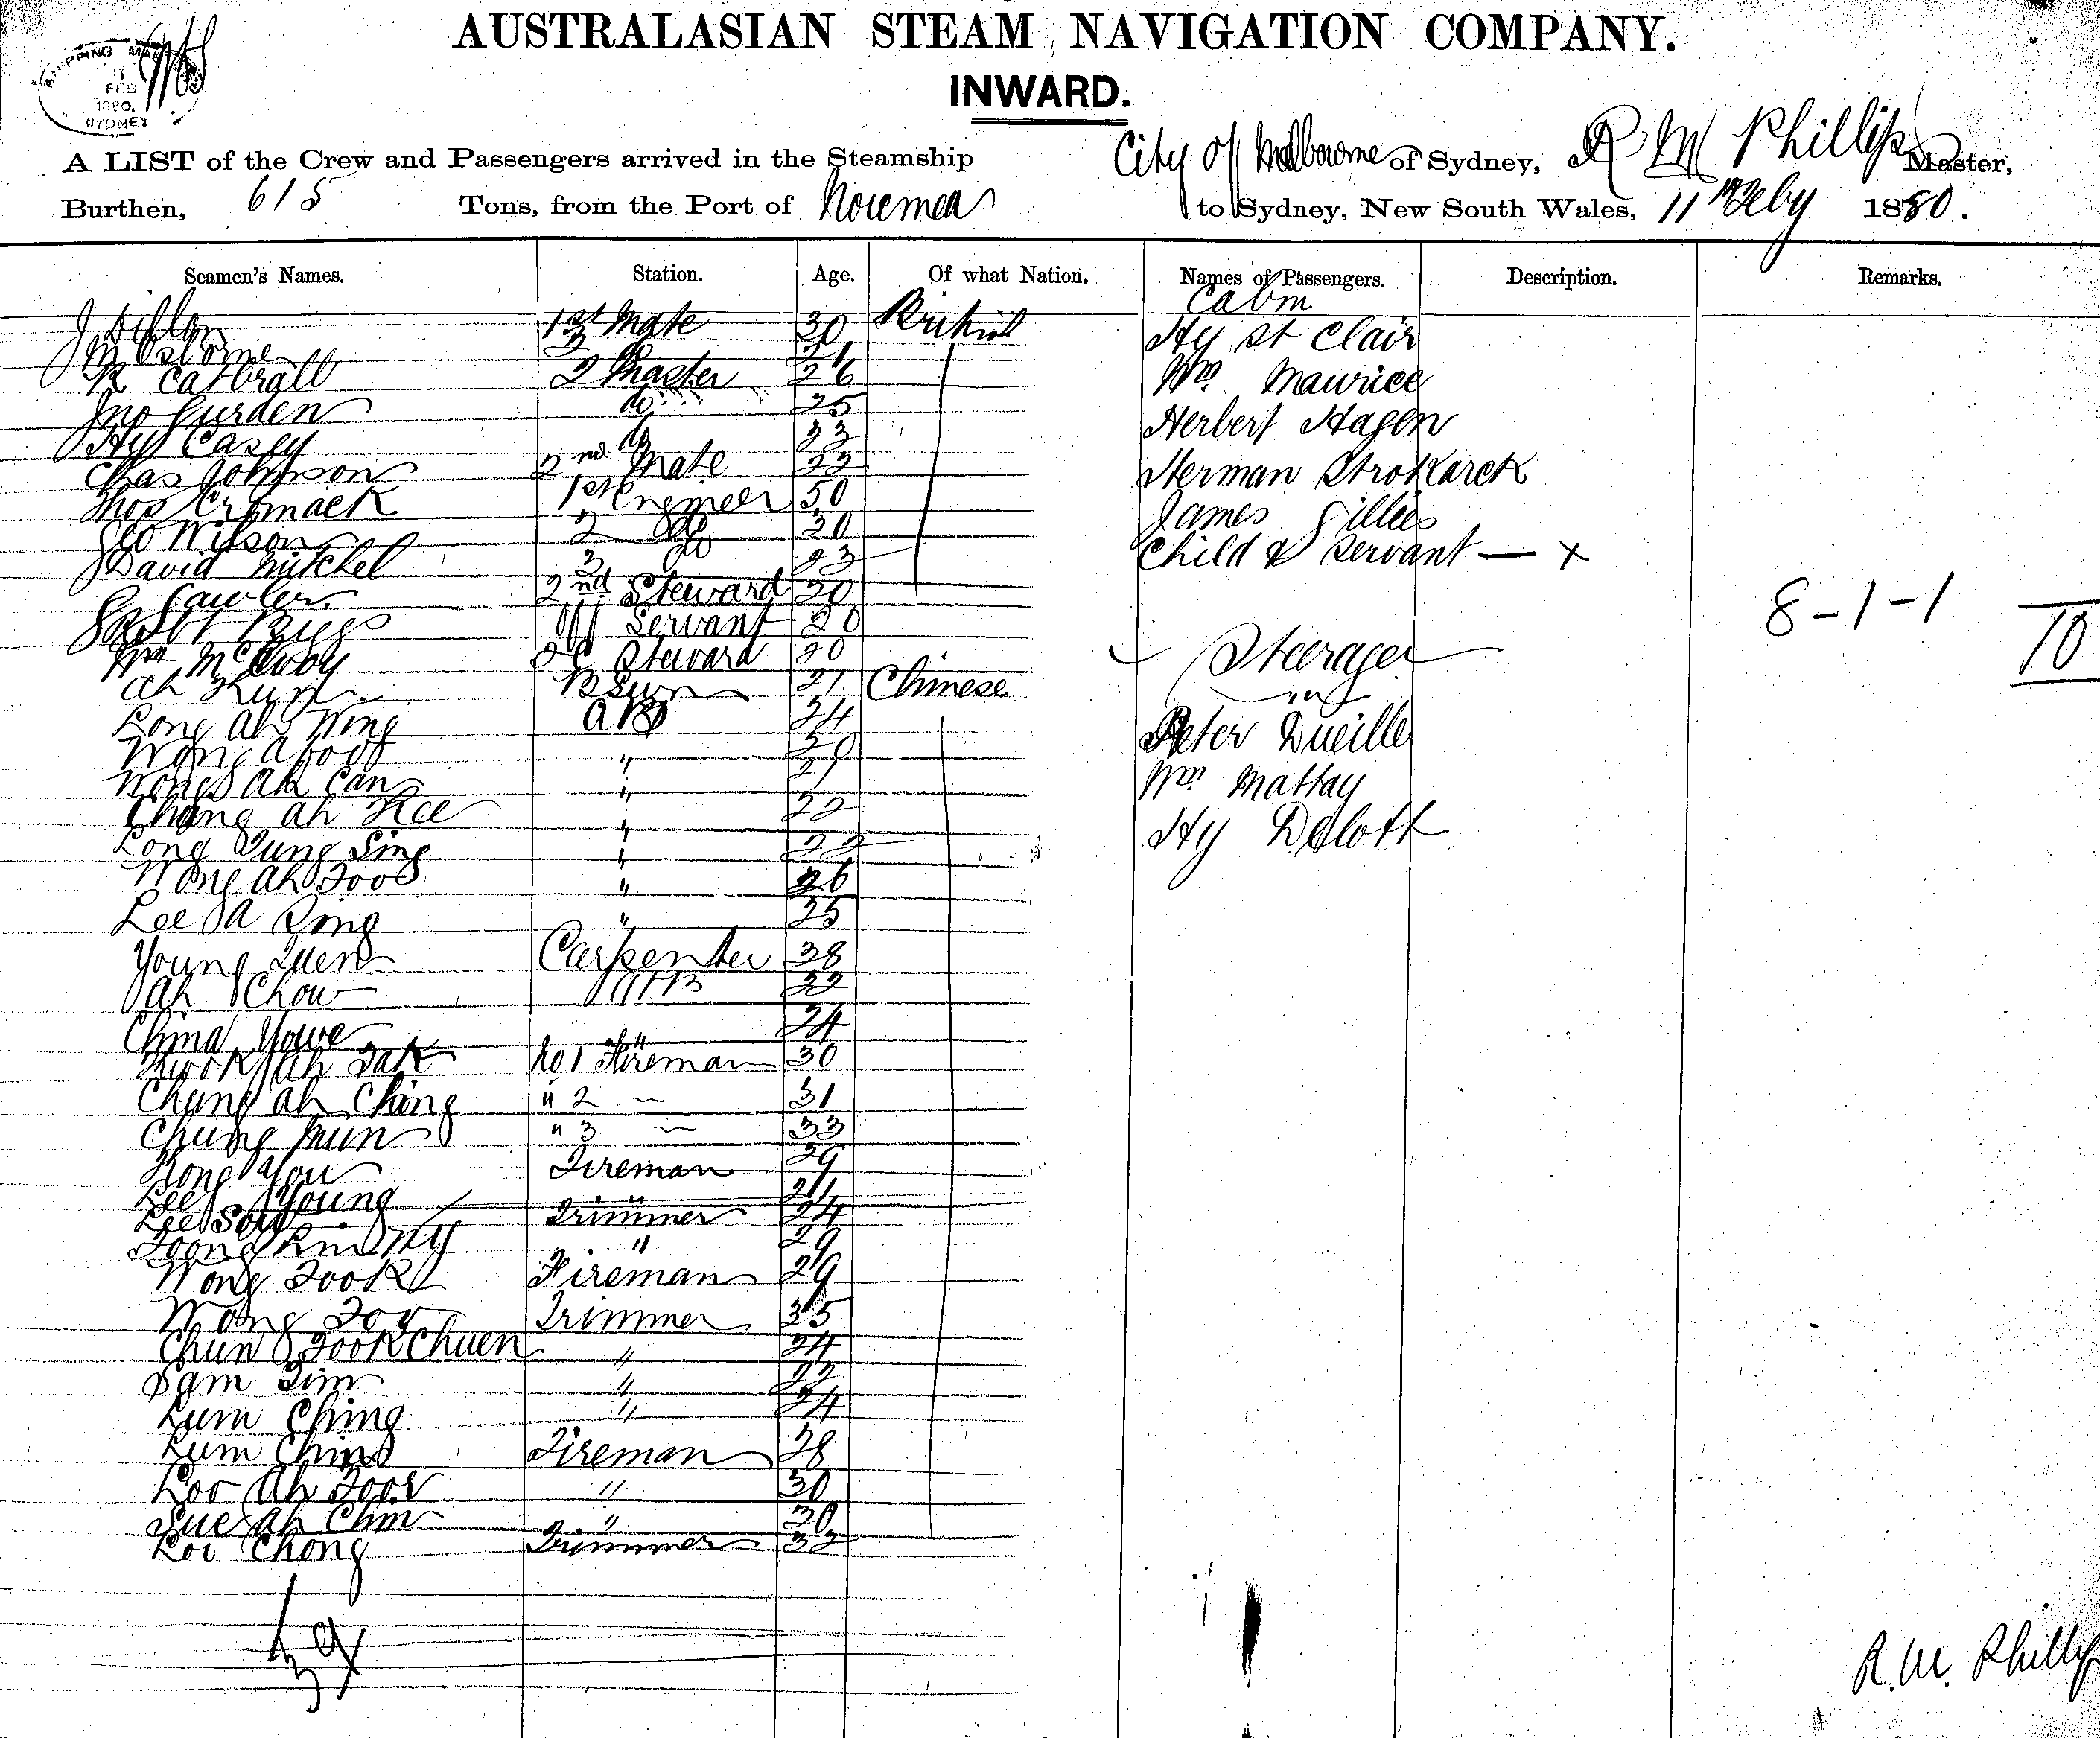 AUSTRALASIAN STEAM NAVIGATION COMPANY.
INWARD.
SHIPPING MA
11
FEB
1880.
SYDNEY
A LIST of the Crew and Passengers arrived in the Steamship City of Melbourne of Sydney, R M Phillips Master,
Burthen, 615 Tons, from the Port of Noumea to Sydney, New South Wales, 11th Feby 1880.
Seamen's Names. Station. Age. Of what Nation. Names of Passengers. Description. Remarks.
Cabin
J 1st Mate 30 British Hy St Clair
J M Osborne 3 do
R Catbrall 2 Master 26 Wm Maurice
Jno Gurden do 25 Herbert Hagen
Hy Casey do 23
Chas Johnson 2nd Mate 22 Herman Strokarck
Thos Cromack 1st Engineer 50 James Gillies
Geo Wilson 2 do 30
David Mitchel 3 do 23 Child & Servant — x
Lawler 2nd Steward 20 8-1-1
Robt Riggs Off Servant 20 10
Wm McEvoy Steward 20 Steerage
Ah 27 Chinese
Long Ah Wing AB 24 Peter Dueille
Wong " 29
Wong Ah Can " Wm Mattay
Chang Ah Kee " 22 Hy Delott
Long Sung Sing " 22
Wong Ah Foo " 26
Lee A Ring " 25
Young Yuen Carpenter 38
Ah Chow AB 32
China Youe " 24
Kwok Ah Tak No 1 Fireman 30
Chung Ah Ching " 2 — 31
Chung Mun " 3 — 33
Kong You Fireman 29
Lee Young " 24
Lee Soy Trimmer 24
" 29
Wong Fook Fireman 29
Wong Foy Trimmer 35
Chun Fook Chuen " 24
Sam Tim " 22
Lum Ching " 24
Lum Ching Fireman 28
Loo Ah Foor " 30
Sue Ah Chin " 30
Loi Chong Trimmer 32
39
R. M. Phillips